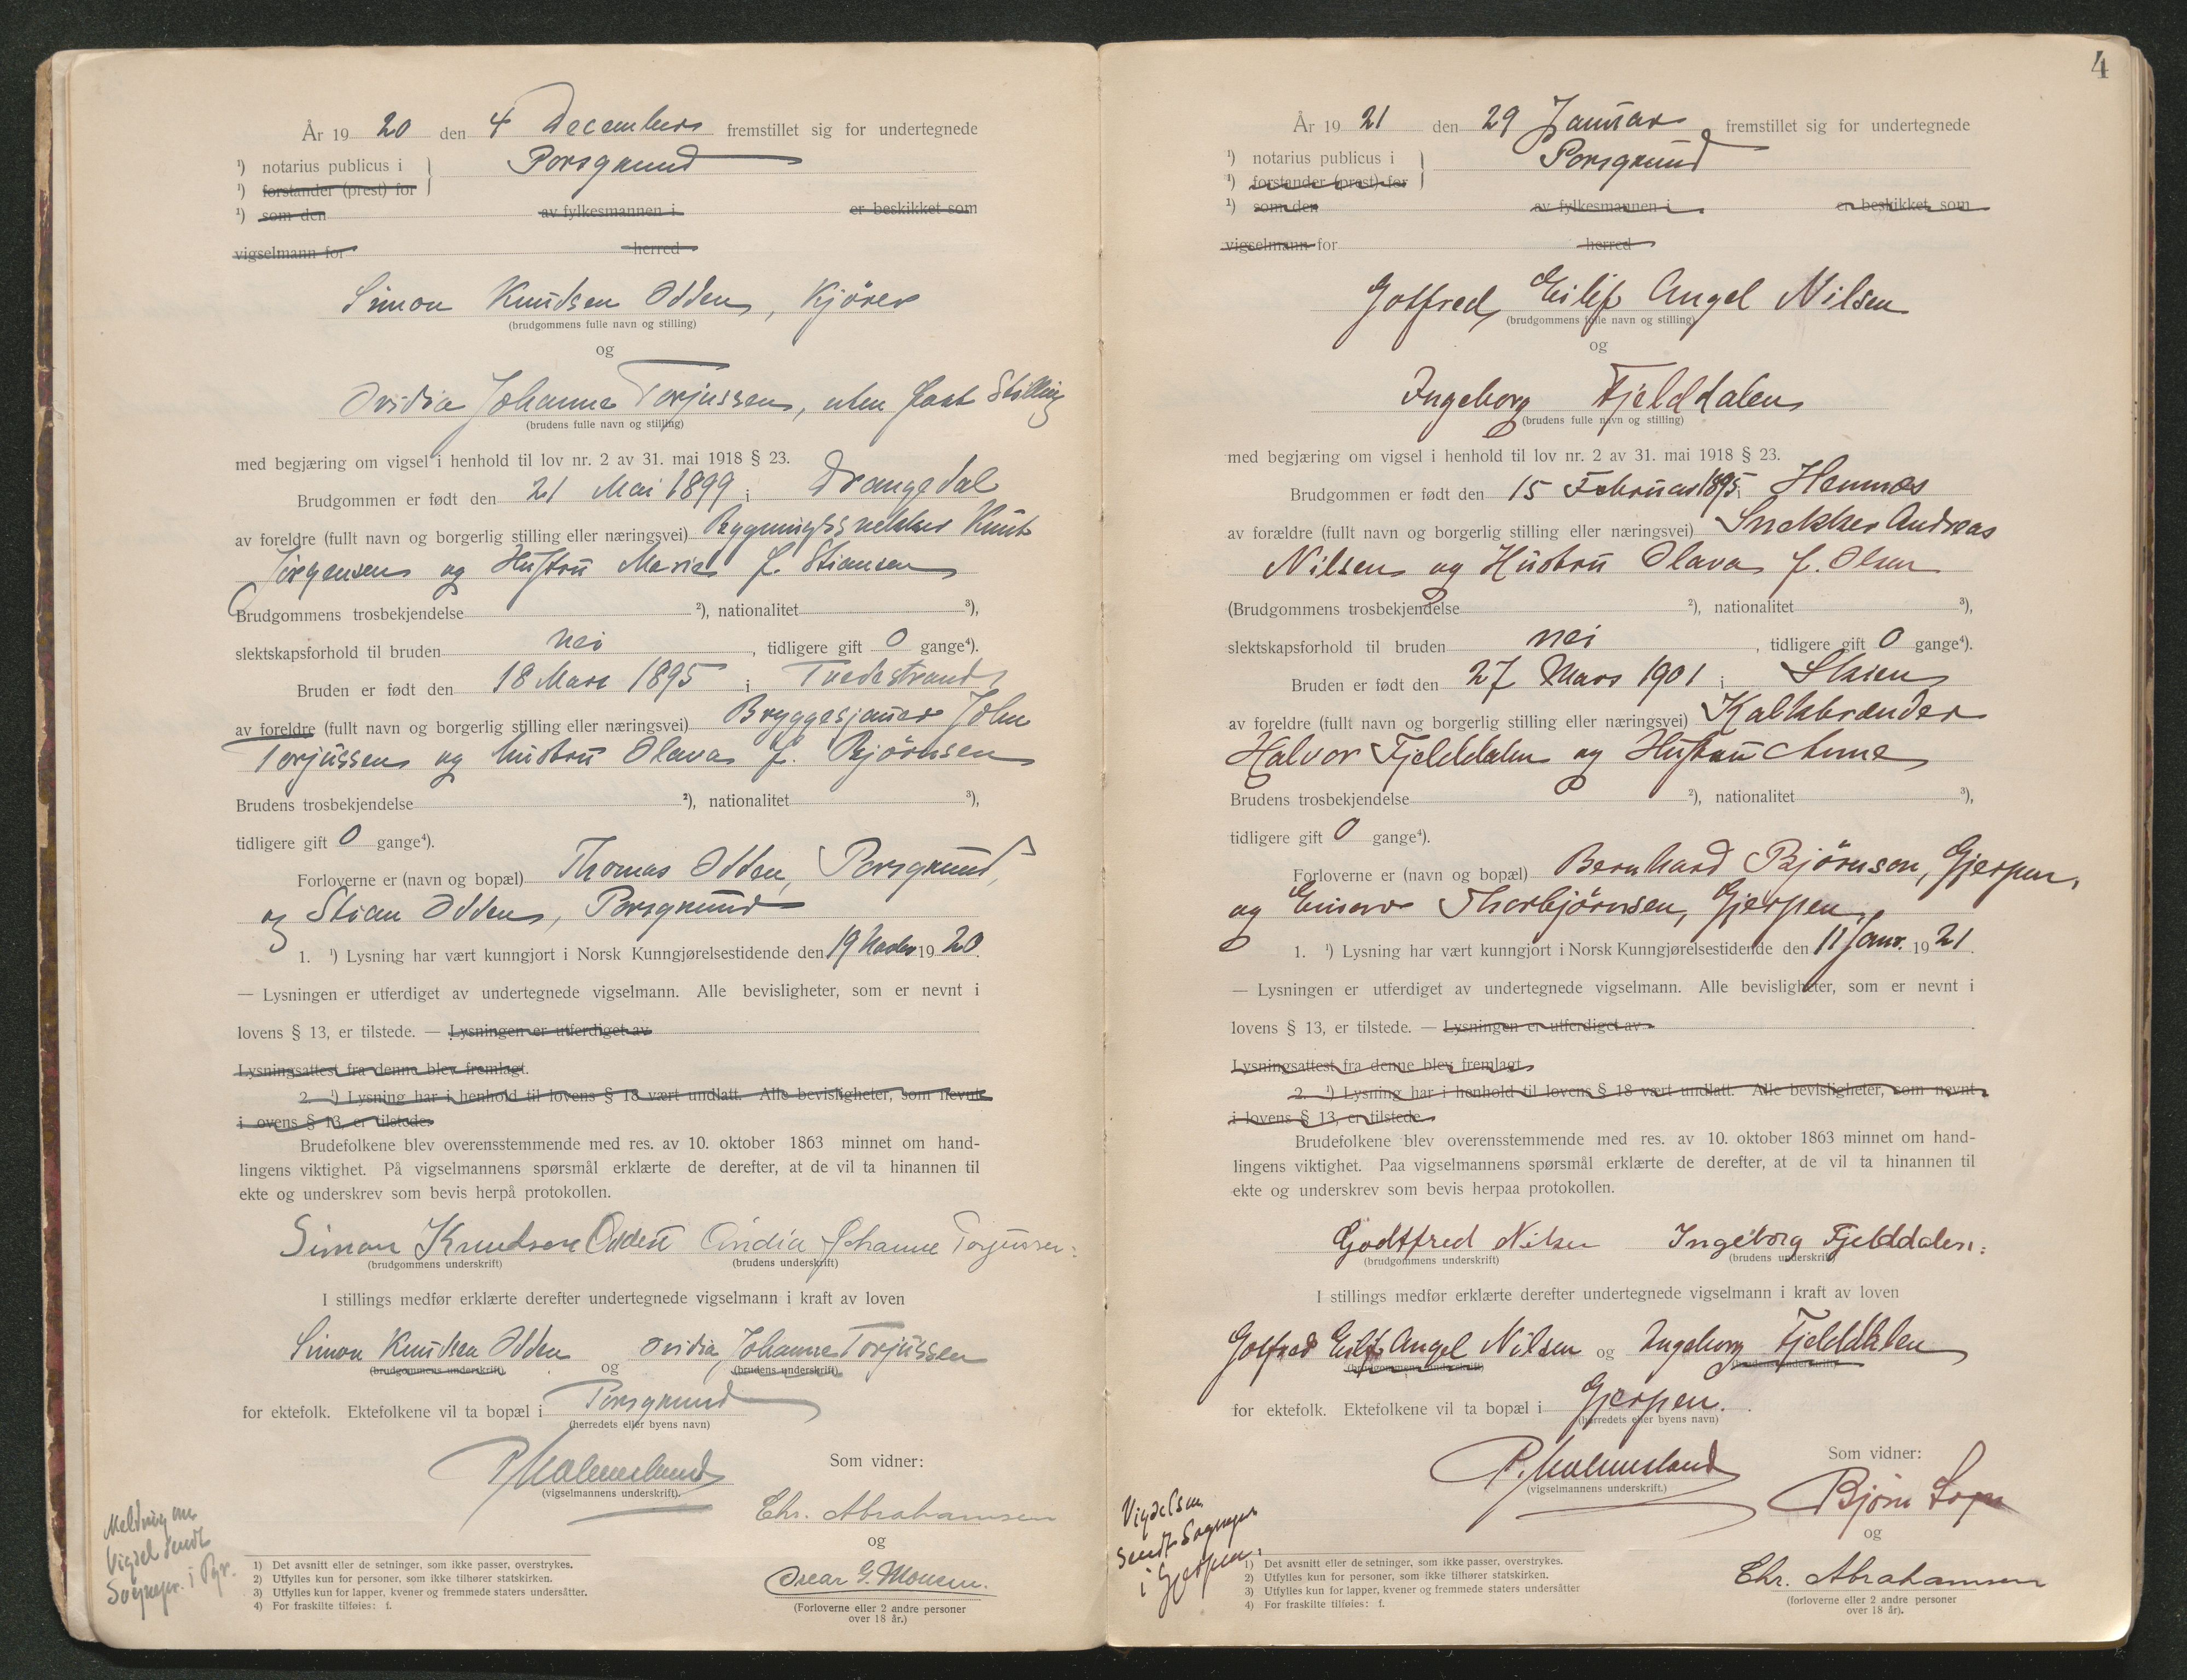 År 1920 den 4 December fremstillet sig for undertegnede
¹) notarius publicus i Porsgrund
¹) forstander (prest) for
¹) som den av fylkesmannen i er beskikket som
vigselmann for herred
Simon Knudsen Odden, Kjører
(brudgommens fulle navn og stilling)
og
Ovidia Johanne Torjussen, uten fast Stilling
(brudens fulle navn og stilling)
med begjæring om vigsel i henhold til lov nr. 2 av 31. mai 1918 § 23.
Brudgommen er født den 21 Mai 1899 i Drangedal
av foreldre (fullt navn og borgerlig stilling eller næringsvei) Bygningssnekker Knut
Jörgensen og Hustru Marie f. Stiansen
Brudgommens trosbekjendelse ²), nationalitet ³),
slektskapsforhold til bruden nei, tidligere gift 0 gange⁴).
Bruden er født den 18 Mars 1895 i Tvedestrand
av foreldre (fullt navn og borgerlig stilling eller næringsvei) Bryggesjauer John
Torjussen og hustru Olava f. Bjørnsen
Brudens trosbekjendelse ²), nationalitet ³),
tidligere gift 0 gange⁴).
Forloverne er (navn og bopæl) Thomas Odden, Porsgrund,
og Stian Odden, Porsgrund
1. ¹) Lysning har vært kunngjort i Norsk Kunngjørelsestidende den 19 Novbr 1920.
— Lysningen er utferdiget av undertegnede vigselmann. Alle bevisligheter, som er nevnt i
lovens § 13, er tilstede. — Lysningen er utferdiget av
Lysningsattest fra denne blev fremlagt.
2. ¹) Lysning har i henhold til lovens § 18 vært undlatt. Alle bevisligheter, som nevnt
i ovens § 13, er tilstede.
Brudefolkene blev overensstemmende med res. av 10. oktober 1863 minnet om hand-
lingens viktighet. På vigselmannens spørsmål erklærte de derefter, at de vil ta hinannen til
ekte og underskrev som bevis herpå protokollen.
Simon Knudsen Odden Ovidia Johanne Torjussen
(brudgommens underskrift) (brudens underskrift)
I stillings medfør erklærte derefter undertegnede vigselmann i kraft av loven
Simon Knudsen Odden og Ovidia Johanne Torjussen
(brudgommens underskrift) (brudens underskrift)
for ektefolk. Ektefolkene vil ta bopæl i Porsgrund
(herredets eller byens navn)
P. Malmesland
(vigselmannens underskrift).
Som vidner:
Chr. Abrahamsen
og
Oscar G. Monsen.
(Forloverne eller 2 andre personer
over 18 år.)
Melding om
Vigsel sendt
Sognepr. i Pgr.
1) Det avsnitt eller de setninger, som ikke passer, overstrykes.
2) Utfylles kun for personer, som ikke tilhører statskirken.
3) Utfylles kun for lapper, kvener og fremmede staters undersåtter.
4) For fraskilte tilføies: f.
4
År 1921 den 29 Januar fremstillet sig for undertegnede
¹) notarius publicus i Porsgrund
¹) forstander (prest) for
¹) som den av fylkesmannen i er beskikket som
vigselmann for herred
Gotfred Eilif Angel Nilsen
(brudgommens fulle navn og stilling)
og
Ingeborg Fjelddalen
(brudens fulle navn og stilling)
med begjæring om vigsel i henhold til lov nr. 2 av 31. mai 1918 § 23.
Brudgommen er født den 15 Februar 1895 i Hemnes
av forældre (fullt navn og borgerlig stilling eller næringsvei) Snekker Andreas
Nilsen og Hustru Olava f. Olsen
(Brudgommens trosbekjendelse ²), nationalitet ³),
slektskapsforhold til bruden nei, tidligere gift 0 gange⁴).
Bruden er født den 27 Mars 1901 i Skien
av foreldre (fullt navn og borgerlig stilling eller næringsvei) Kalkbrænder
Halvor Fjelddalen og Hustru Anne
Brudens trosbekjendelse ²), nationalitet ³),
tidligere gift 0 gange⁴).
Forloverne er (navn og bopæl) Bernhard Bjørnson, Gjerpen,
og Einar Thorbjørnsen, Gjerpen
1. ¹) Lysning har vært kunngjort i Norsk Kunngjørelsestidende den 11 Janr. 1921
— Lysningen er utferdiget av undertegnede vigselmann. Alle bevisligheter, som er nevnt i
lovens § 13, er tilstede. — Lysningen er utferdiget av
Lysningsattest fra denne blev fremlagt
2. ¹) Lysning har i henhold til lovens § 18 vært undlatt. Alle bevisligheter, som nevnt
i lovens § 13, er tilstede
Brudefolkene blev overensstemmende med res. av 10. oktober 1863 minnet om hand-
lingens viktighet. Paa vigselmannens spørsmål erklærte de derefter, at de vil ta hinannen til
ekte og underskrev som bevis herpaa protokollen.
Godtfred Nilsen Ingeborg Fjelddalen
(brudgommens underskrift) (brudens underskrift)
I stillings medfør erklærte derefter undertegnede vigselmann i kraft av loven
Gotfred Eilif Angel Nilsen og Ingeborg Fjelddalen
(brudgommens underskrift) (brudens underskrift)
for ektefolk. Ektefolkene vil ta bopæl i Gjerpen.
(herredets eller byens navn)
P. Malmesland
(vigselmannens underskrift.)
Som vidner:
Bjørn
og
Chr. Abrahamsen
(forloverne eller 2 andre personer
over 18 år).
Vigselsm
sendt Sognepr
i Gjerpen.
1) Det avsnitt eller de setninger, som ikke passer, overstrykes.
2) Utfylles kun for personer, som ikke tilhører statskirken.
3) Utfylles kun for lapper, kvener og fremmede staters undersåtter
4) For fraskilte tilføies: f.